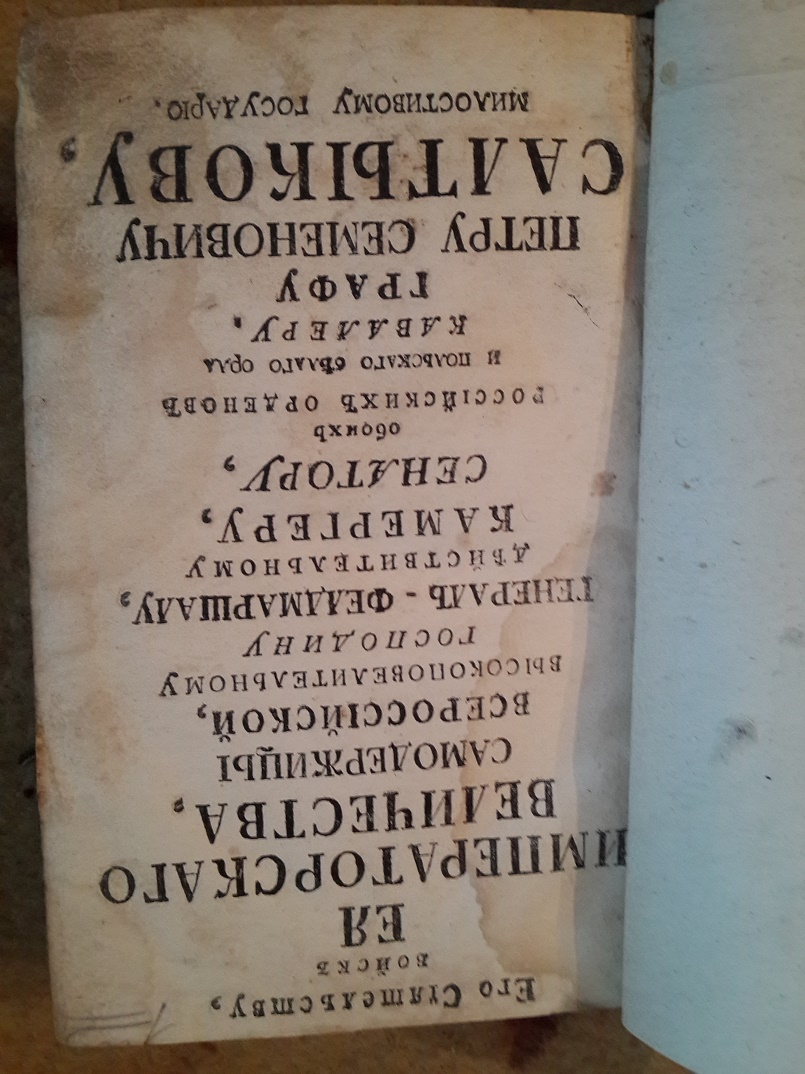 Его Сїятельству,
войскъ
ЕЯ
ИМПЕРАТОРСКАГО
ВЕЛИЧЕСТВА,
САМОДЕРЖИЦЫ
ВСЕРОССЇЙСКОЙ,
ВЫСОКОПОВЕЛИТЕЛЬНОМУ
ГОСПОДИНУ
ГЕНЕРАЛЪ - ФЕЛДМАРШАЛУ,
ДѢЙСТВИТЕЛЬНОМУ
КАМЕРГЕРУ,
СЕНАТОРУ,
обоихъ
РОССЇЙСКИХЪ ОРДЕНОВЪ
И ПОЛЬСКАГО БѢЛАГО ОРЛА
КАВАЛЕРУ,
ГРАФУ
ПЕТРУ СЕМЕНОВИЧУ
САЛТЫКОВУ,
МИЛОСТИВОМУ ГОСУДАРЮ.